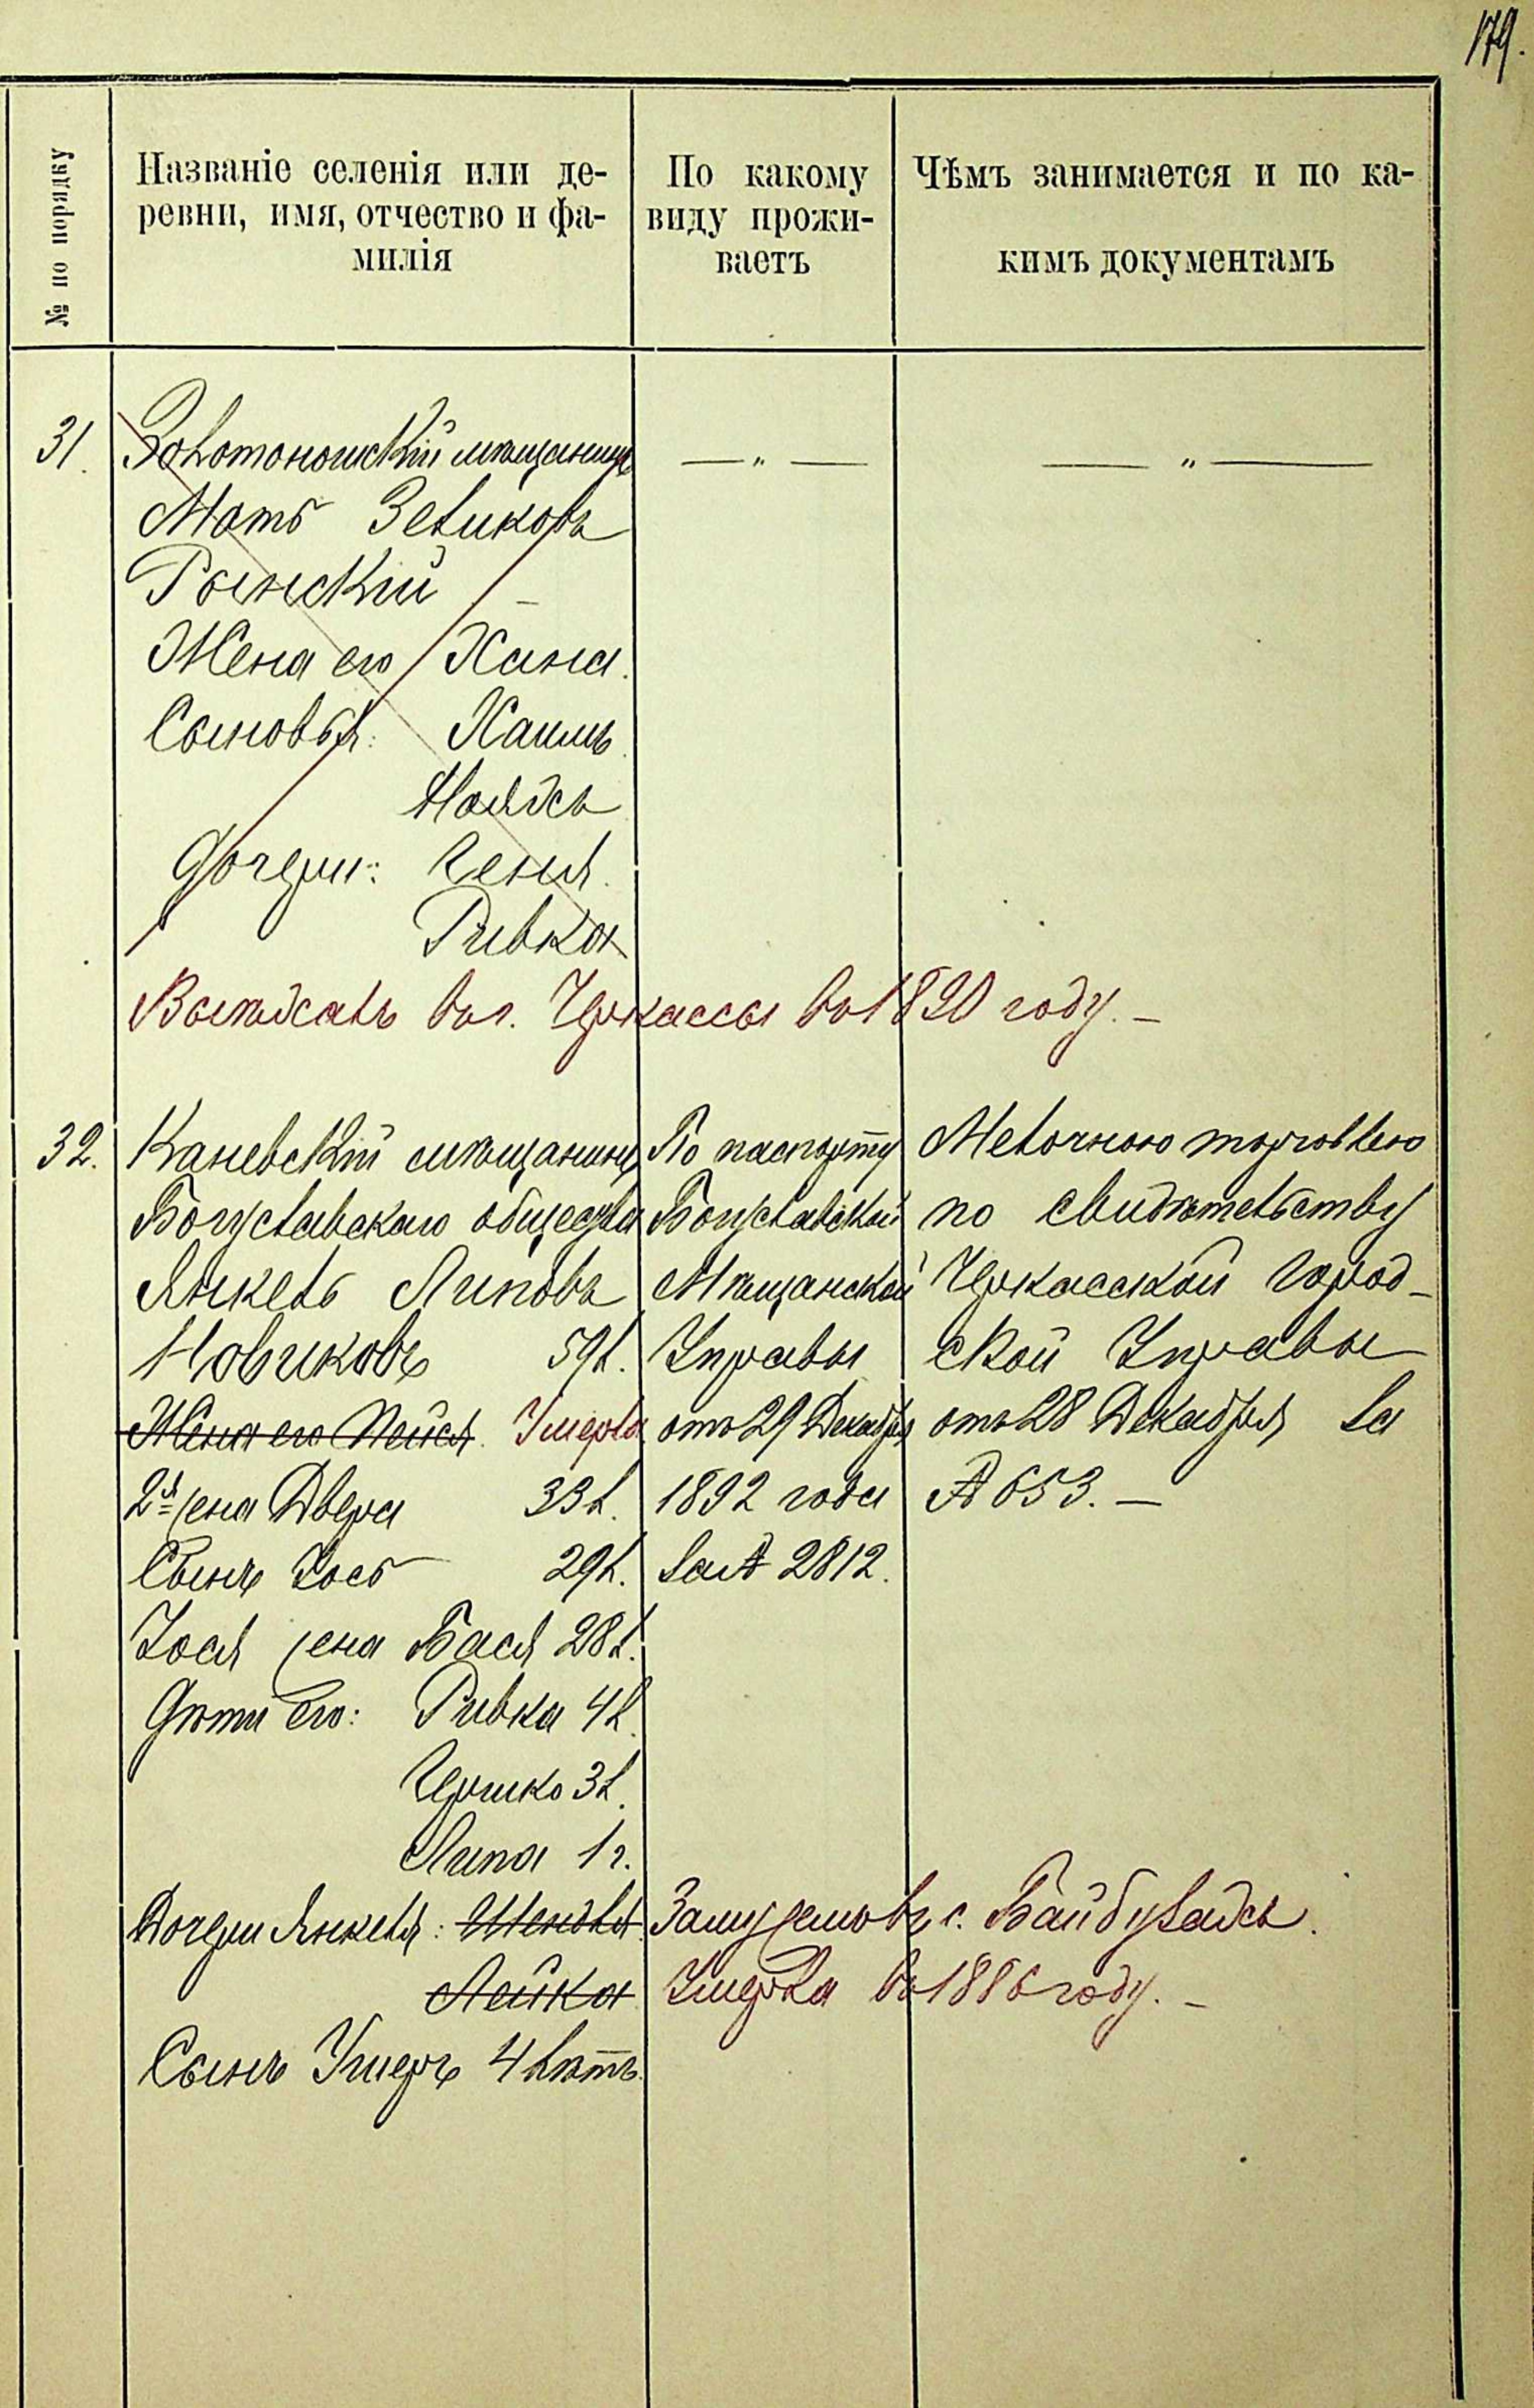 179.
№ по порядку
Названіе селенія или де-
ревни, имя, отчество и фа-
милія
По какому
виду прожи-
ваетъ
Чѣмъ занимается и по ка-
кимъ документамъ
31. Золотоношскій мѣщанинъ — „ — — „ —
Моть Зеликовъ
Рынскій —
Жена его Хана.
Сыновья: Хаимъ
Дочери: Геня.
Ривка
Выѣхалъ въ г. Черкассы въ 1890 году. —
32. Каневскій мѣщанинъ
Богуславскаго общества
Янкель Липовъ
Новиковъ 59 л.
Жена его Пейся. Умерла
2я жена Двера 33 л.
Сынъ Іось 29 л.
Іося жена Бася 28 л.
Дѣти его: Ривка 4 л.
Гершко 3 л.
Липа 1 г.
По паспорту
Богуславской
Мѣщанской
Управы
отъ 29 Декабря
1892 года
за № 2812.
Мелочною торговлею
по свидѣтельству
Черкасской Город-
ской Управы
отъ 28 Декабря за
№ 653. —
Дочери Янкеля: Шендля Замужемъ въ с. Байбузахъ.
Лейка Умерла въ 1886 году. —
Сынъ Ушеръ 4 лѣтъ.